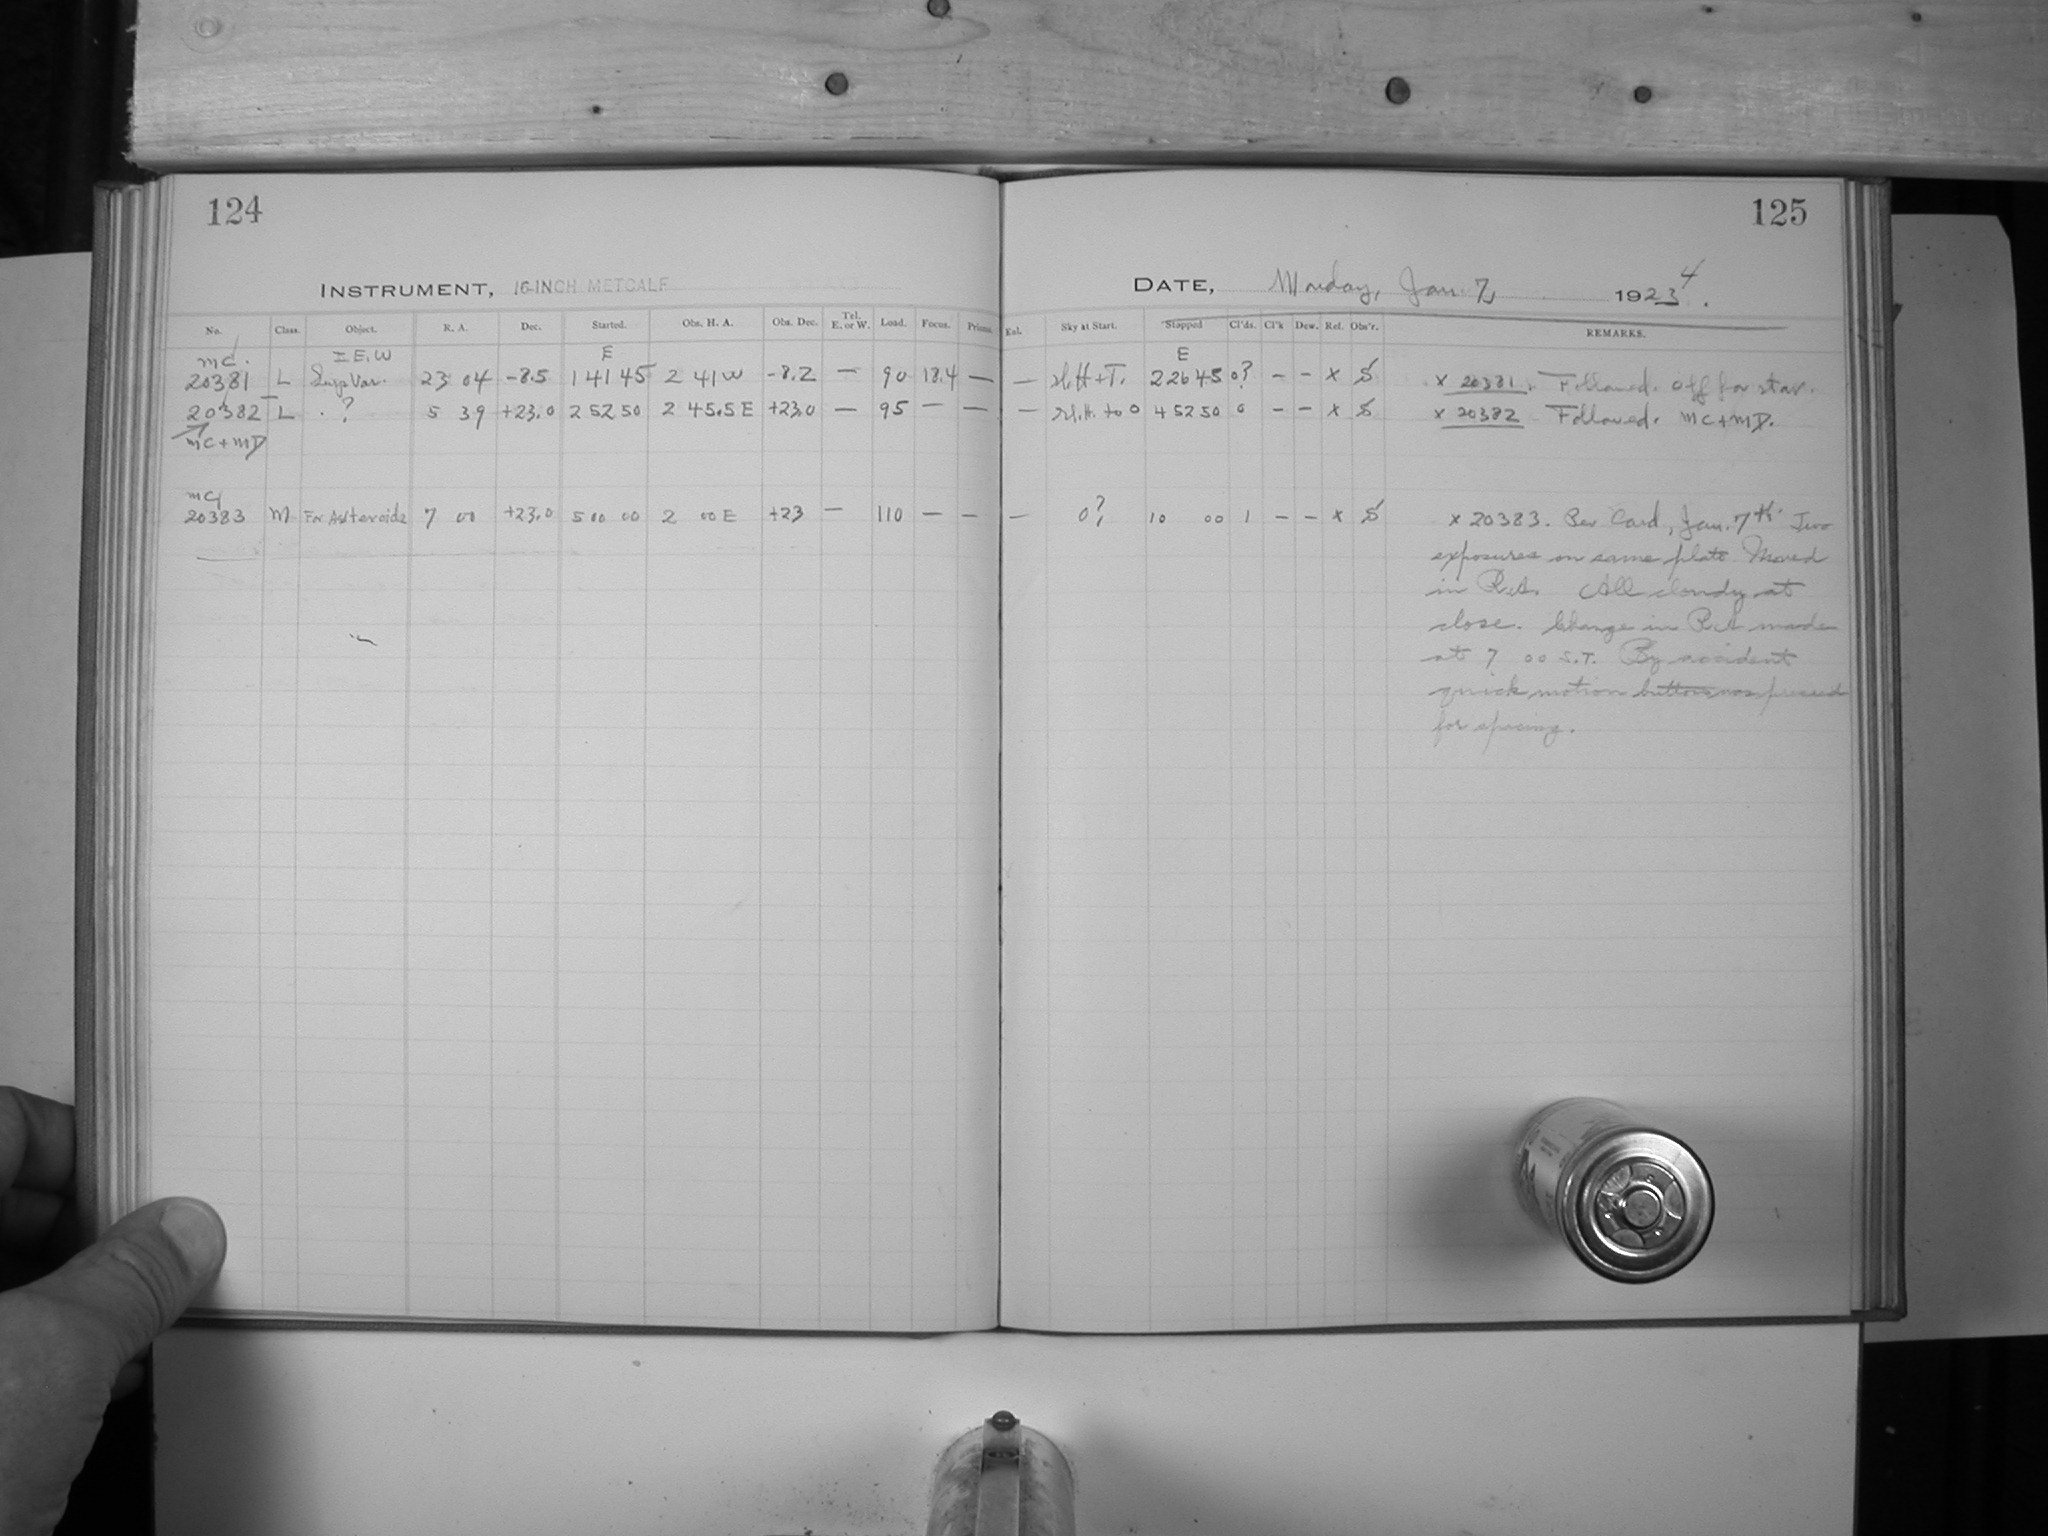 124
125
INSTRUMENT, 16-INCH METCALF
DATE, Monday, Jan. 7, 1923 4.
No. Class. Object. R. A. Dec. Started. Obs. H. A. Obs. Dec. Tel. E. or W. Load. Focus. Prisms. Exl. Sky at Start. Stopped Cl'ds. Cl'k Dew. Ref. Obs'r. REMARKS.
mc. I E.W E E
20381 L Var. 23 04 -8.5 1 41 45 2 41 W -8.2 — 90 18.4 — — H.H + T. 2 26 45 0? - - x S x 20381. Followed. Off for star.
20382 L . ? 5 39 +23.0 2 52 50 2 45.5 E +23.0 — 95 — — — H.H. to 0 4 52 50 0 - - x S x 20382 Followed. MC + MD.
MC + MD
mc
20383 M For Asteroids 7 00 +23.0 5 00 00 2 00 E +23 — 110 — — — 0? 10 00 1 - - x S x 20383. Per Card, Jan. 7th. Two
exposures on same plate Moved
in R.A. All cloudy at
close. Change in R.A made
at 7 00 S.T. By accident
quick motion button was pressed
for spacing.